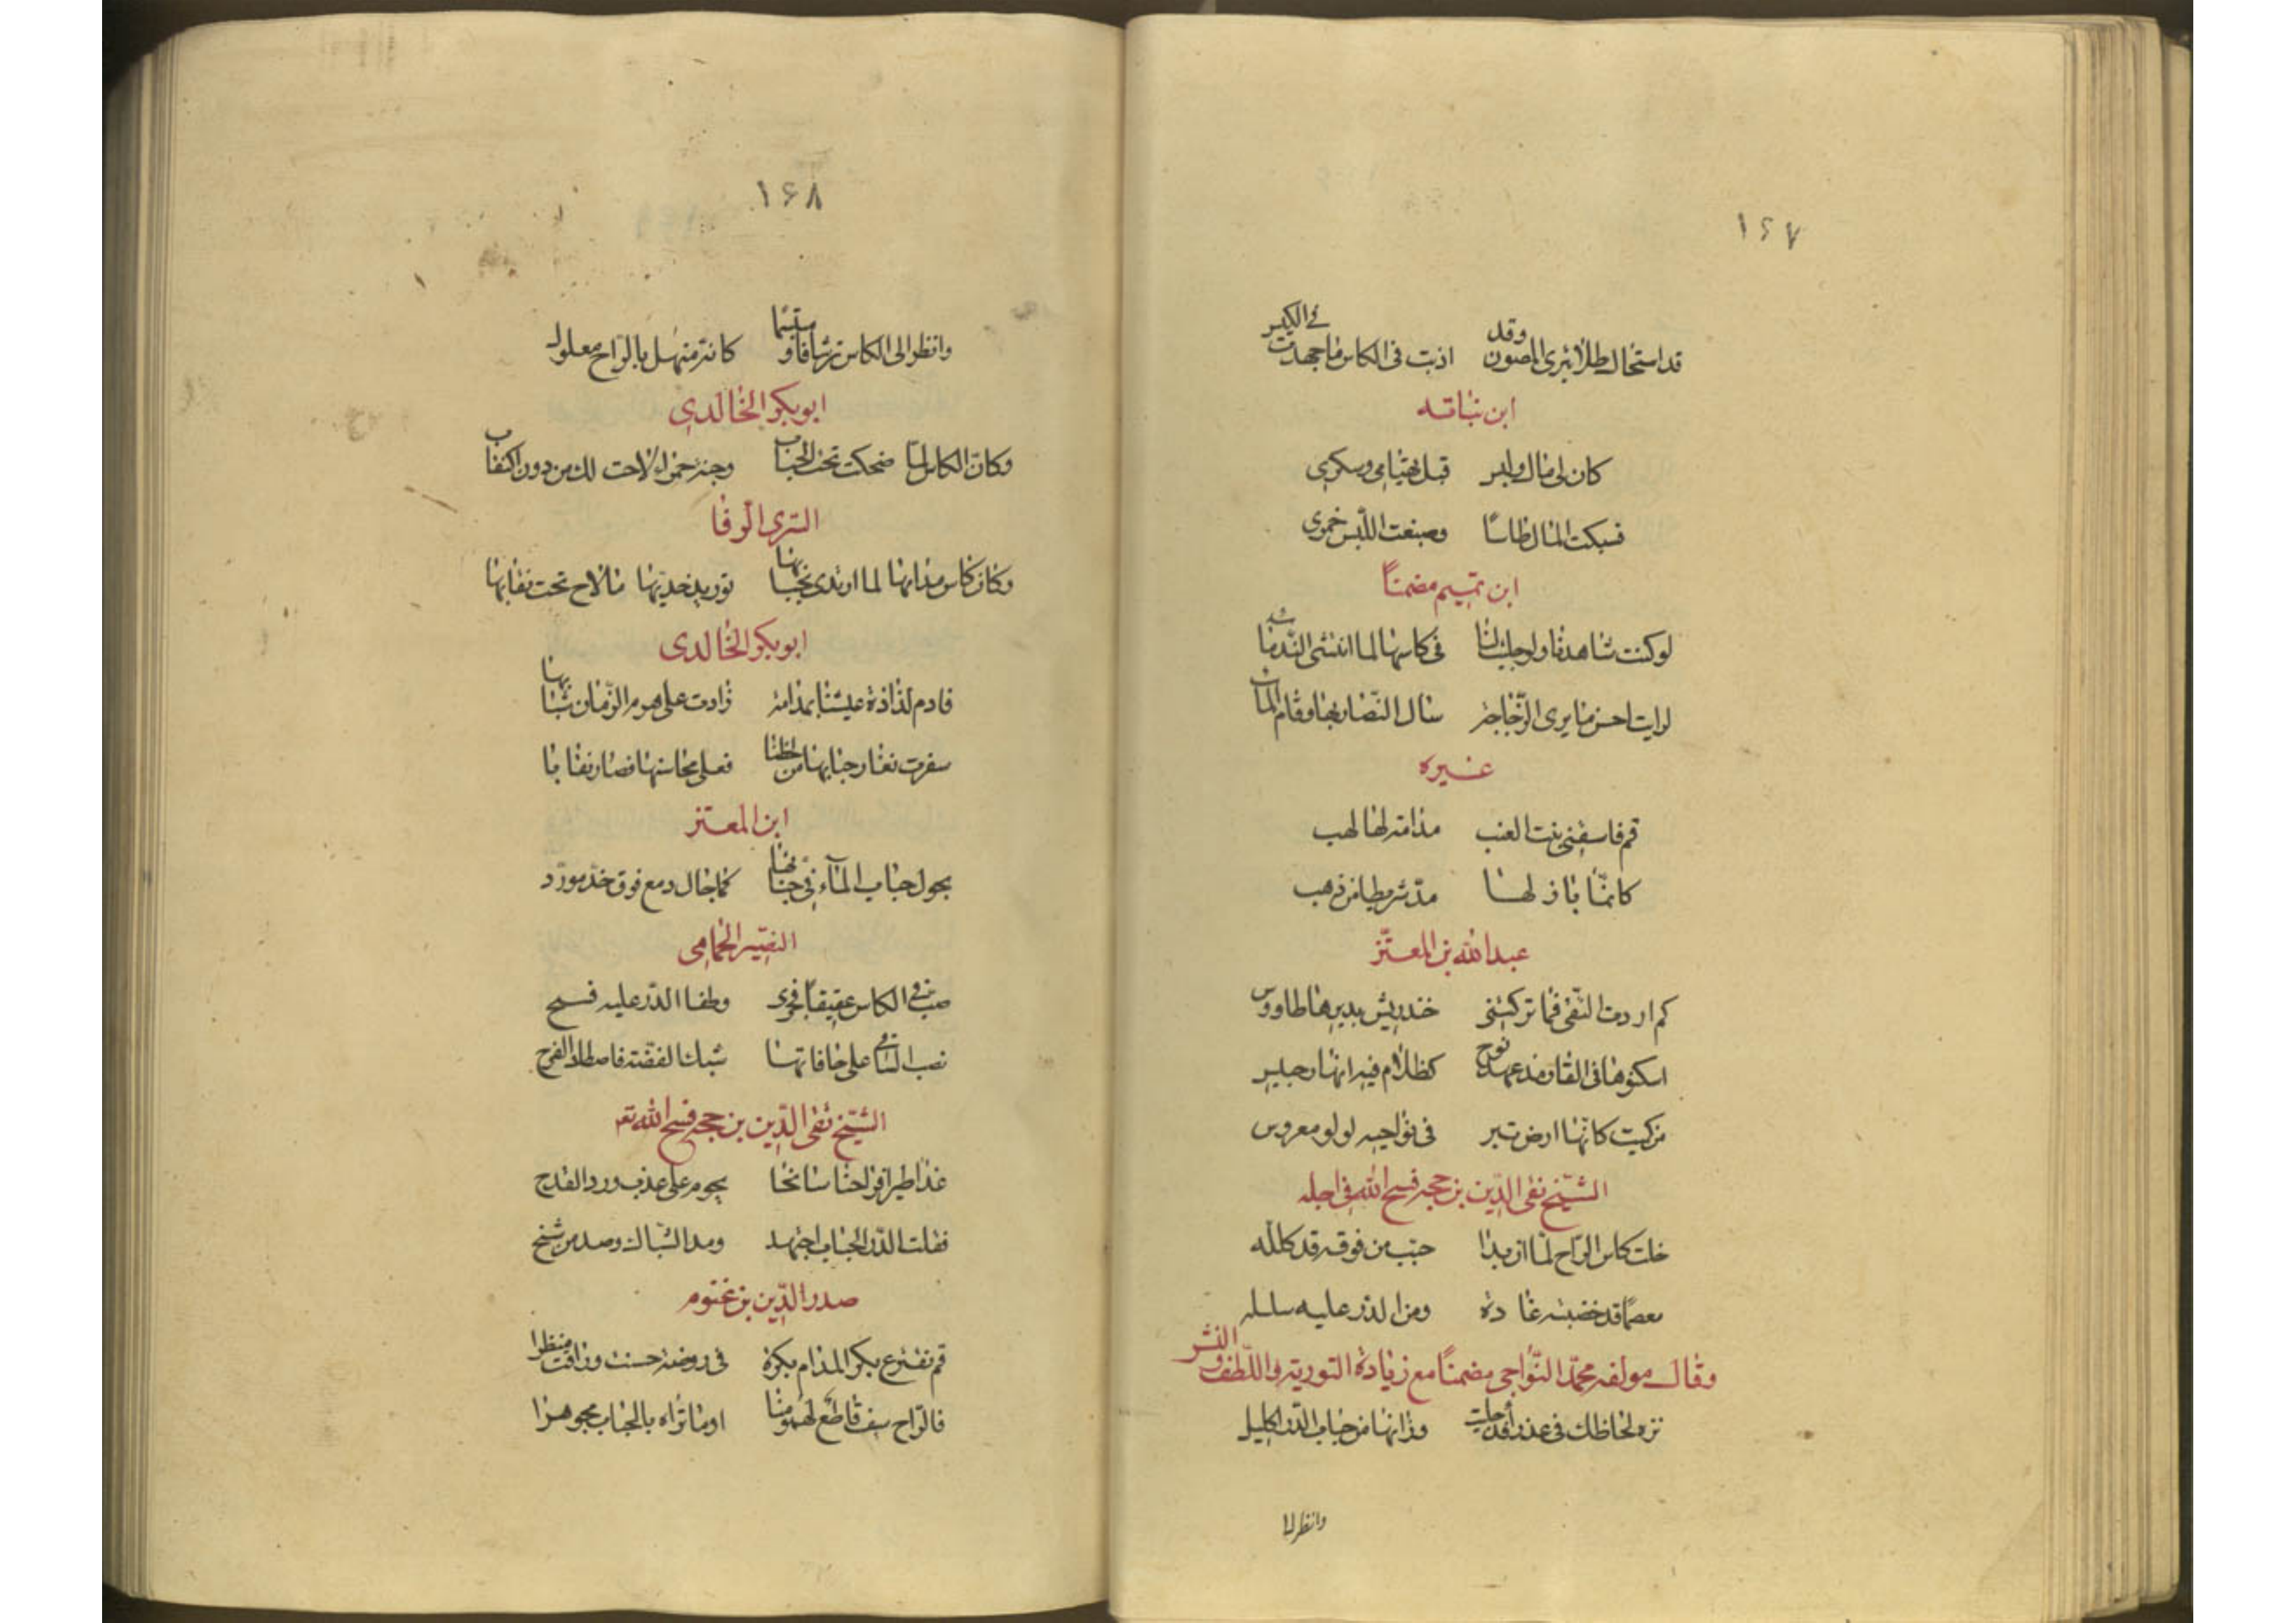 ١٦٧
قد استحال طلا تبرى المصون وقد اذبت فى الكاس ما جمدت فى الكير
ابن نباته
كان لى مال ولبس قبل هيامى وسكرى
فسبكت المال طاسا وصبغت اللبس خمرى
ابن تميم مضمنا
لو كنت شاهدنا ولو جليت لنا فى كاسها لما انتشى الندمان
لرايت احسن ما يرى الزجاجة سال النضار بها وقام الماء
غيره
قم فاسقنى بنت العنب مدامة لها لهب
كانما باذلها مذهب
عبد الله بن المعتز
كم اردت التقى فما تركتنى خندريس يديرها طاووس
اسكنوها فى القار مذ عهد نوح كظلام فيه نهار حبيس
من كميت كانها ارض تبر فى نواحيه لولو مغروس
الشيخ تقى الدين بن حجه فسح الله فى اجله
خلت كاس الراح لما ان بدا حبب من فوقه قد كلله
معصما قد خضبته غادة ومن الدر عليه سلسله
وقال مولفه محمد النواجى مضمنا مع زيادة التورية واللطف والنشر
نزه لحاظك فى عذراء قد جليت وزانها من حباب الدن اكليل
وانظر الى
١٦٨
وانظر الى الكاس ترشافا ومبتسما كانه منهل بالراح معلول
ابو بكر الخالدى
وكان الكاس لما ضحكت تحت الحباب وجنة حمراء لاحت لك من دون النقاب
السرى الرفا
وكان كاس مدامها لما ارتدى بحبابها توريد خديها ما لاح تحت نقابها
ابو بكر الخالدى
قادم لذاذة عيشنا بمدامة زادت على هرم الزمان شبابها
سفرت فغار حبابها من لحظنا فعلى محاسنها فصار نقابا
ابن المعتز
يجول حباب الماء فى جنباتها كما جال دمع فوق خد مورد
النصير الحمامى
صب فى الكاس عقيقا فجرى وطفا الدر عليه فسبح
نصب الساقى على حافاتها شبك الفضة فاصطاد الفرح
الشيخ تقى الدين بن حجه فسح الله تعـ
غدا طير افراحنا سانحا يحوم على عذب ورد القدح
فقلت الدر الحباب اجتهد ومد الشباك وصد من سنح
صدر الدين بن غنوم
قم نفترع بكر المدام بكرة فى روضة حسنت وراقت منظرا
فالراح سيف قاطع لهمومنا او ما تراه بالحباب مجوهرا